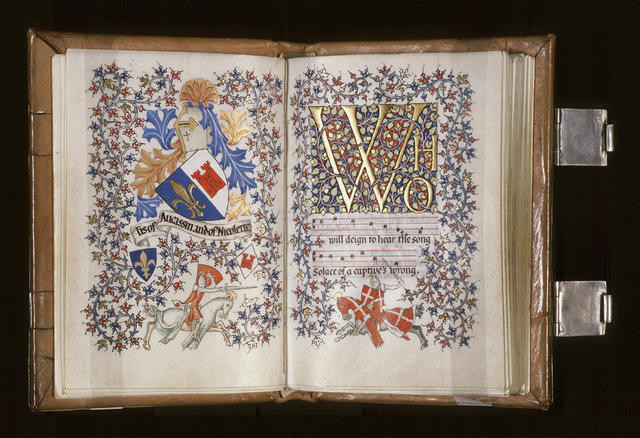 Tis of Aucassin and of Nicolette
WHO
will deign to hear the song
Solace of a captive's wrong,